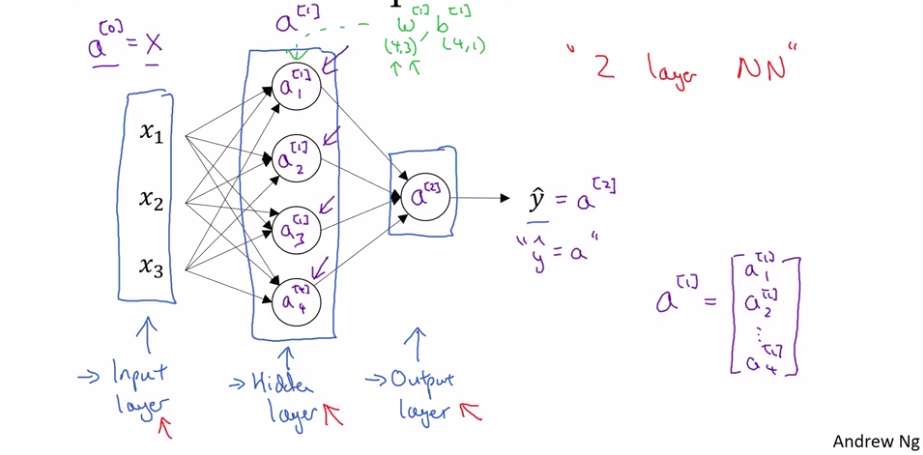 a^[0] = X
a^[1]
w^[1], b^[1]
(4,3) (4,1)
"2 layer NN"
x₁
x₂
x₃
a₁^[1]
a₂^[1]
a₃^[1]
a₄^[1]
a^[2]
ŷ = a^[2]
"ŷ = a"
a^[1] = [a₁^[1]
a₂^[1]
⋮
a₄^[1]]
→ Input
layer
→ Hidden
layer
→ Output
layer
Andrew Ng